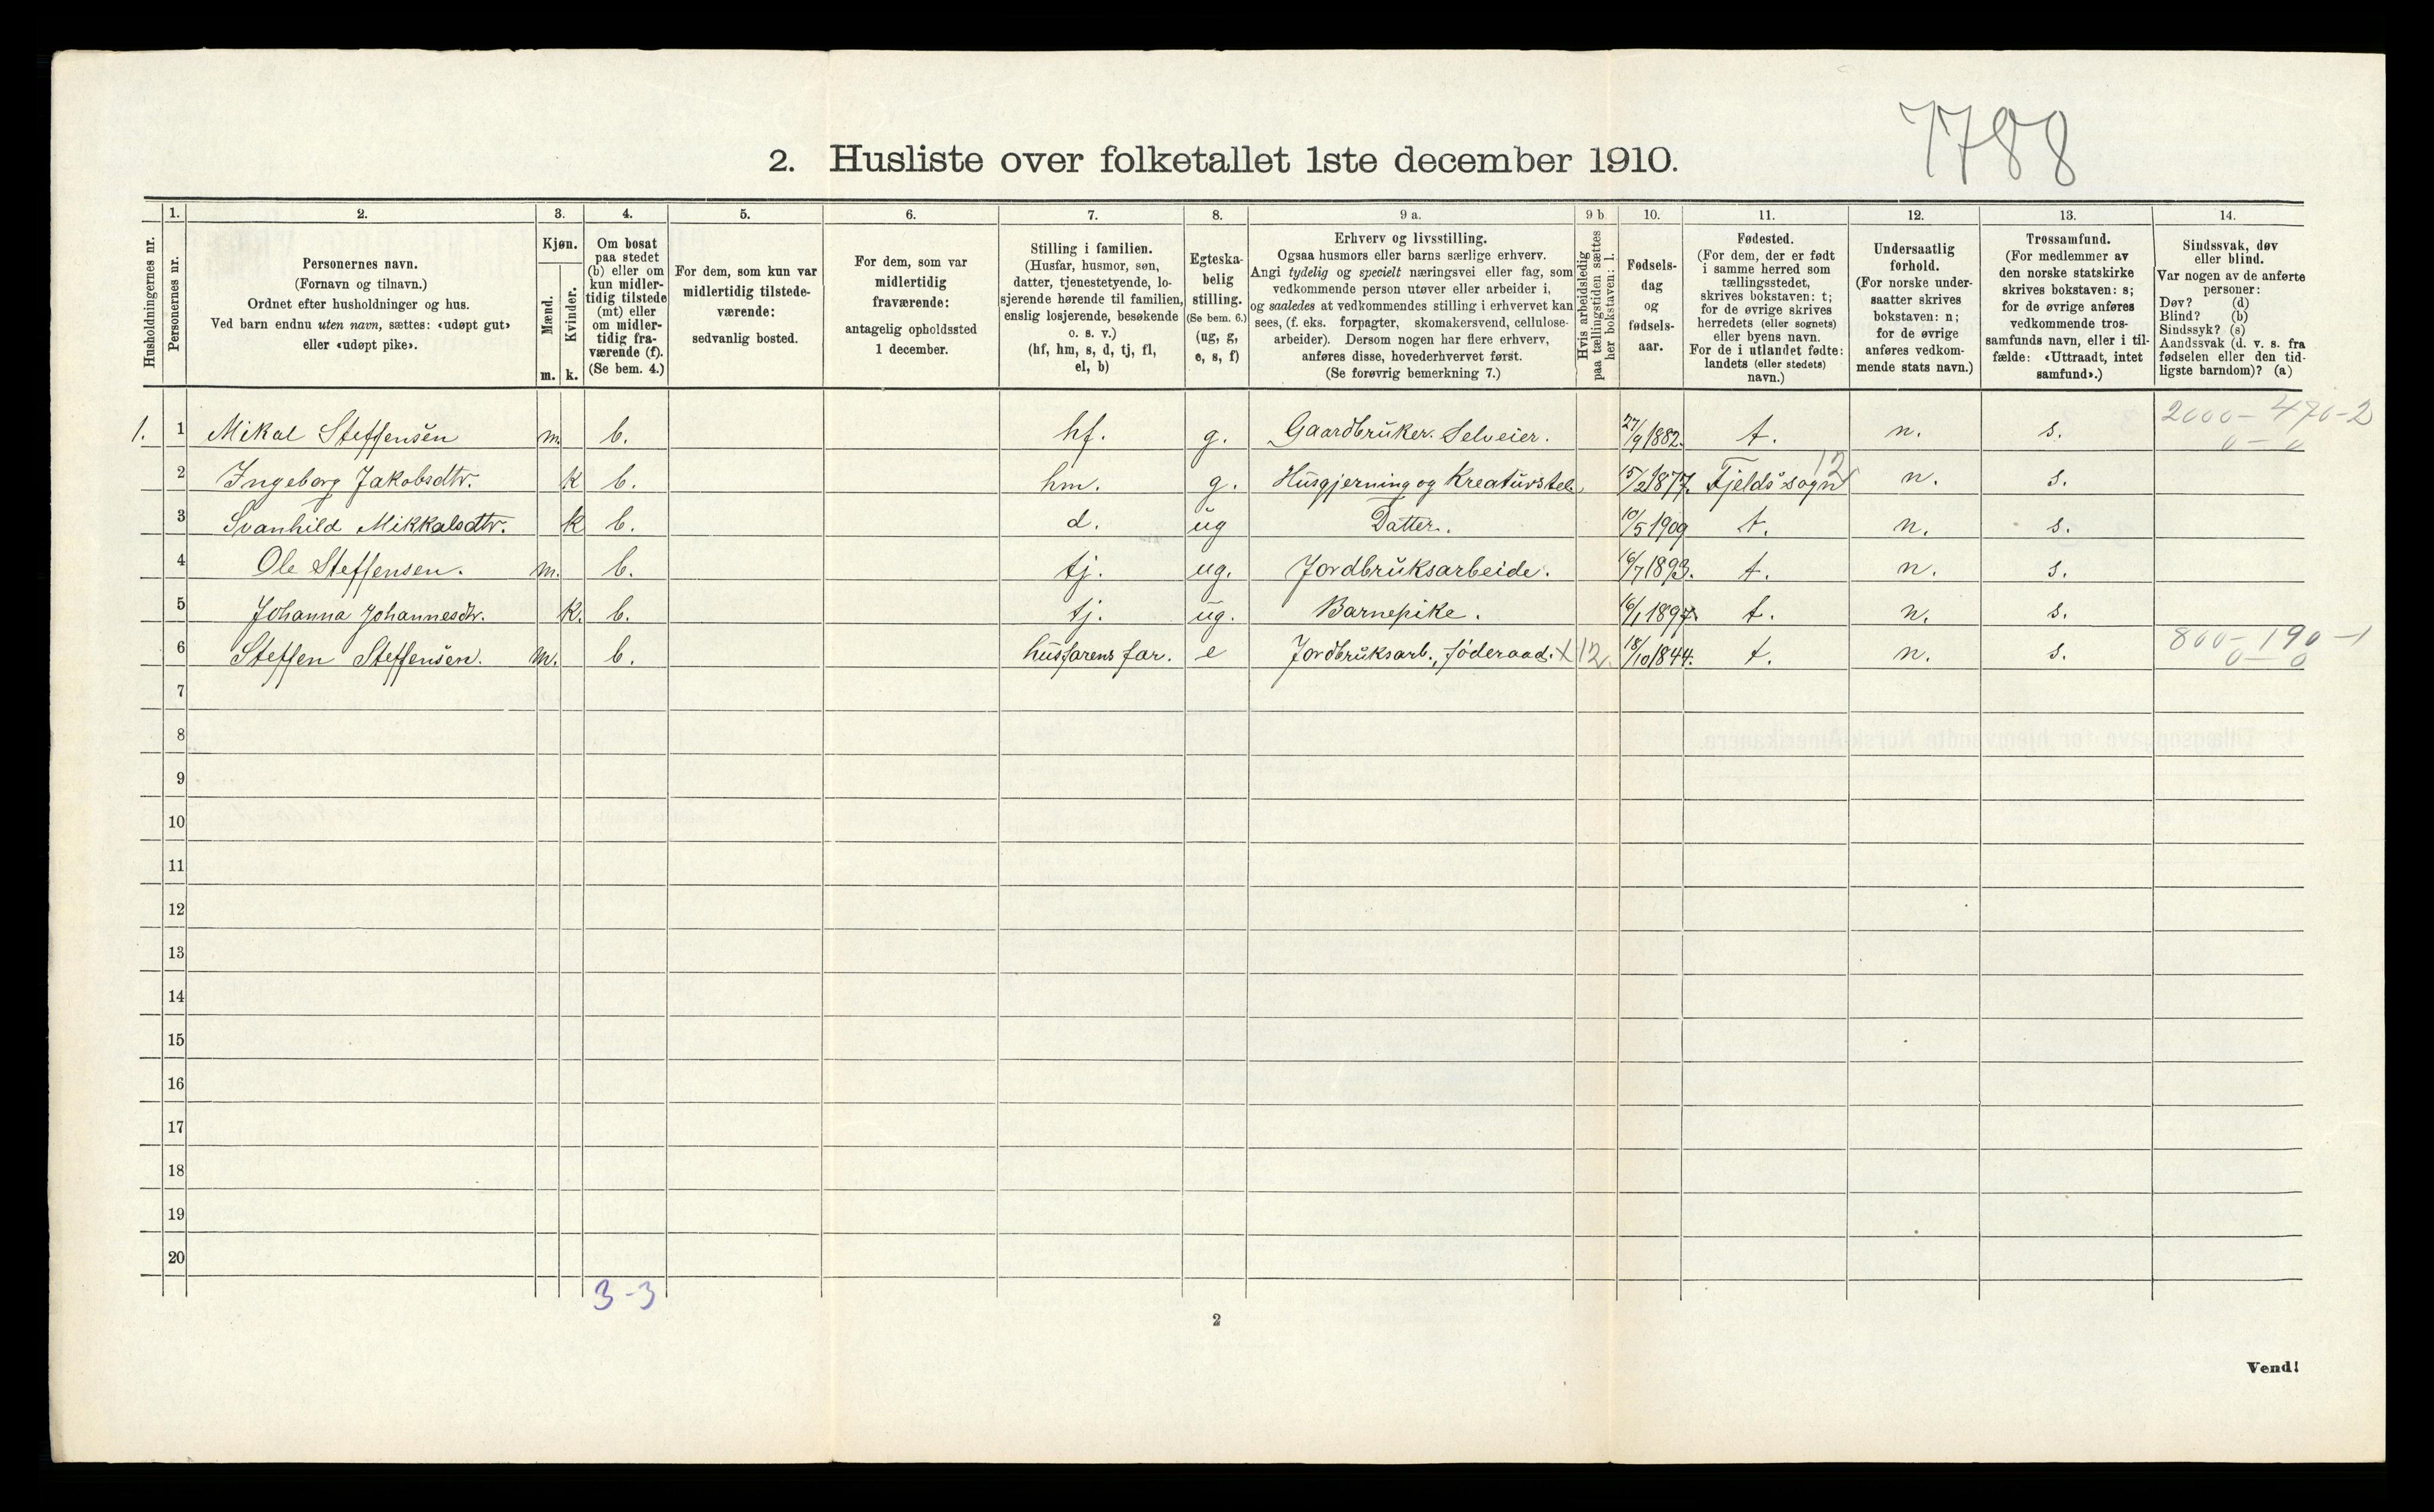 7788
2. Husliste over folketallet 1ste december 1910.
1. 2. 3. 4. 5. 6. 7. 8. 9 a. 9 b 10. 11. 12. 13. 14.
Husholdningernes nr.
Personernes nr.
Personernes navn.
(Fornavn og tilnavn.)
Ordnet efter husholdninger og hus.
Ved barn endnu uten navn, sættes: «udøpt gut»
eller «udøpt pike».
Kjøn.
Mænd.
Kvinder.
m. k.
Om bosat
paa stedet
(b) eller om
kun midler-
tidig tilstede
(mt) eller
om midler-
tidig fra-
værende (f).
(Se bem. 4.)
For dem, som kun var
midlertidig tilstede-
værende:
sedvanlig bosted.
For dem, som var
midlertidig
fraværende:
antagelig opholdssted
1 december.
Stilling i familien.
(Husfar, husmor, søn,
datter, tjenestetyende, lo-
sjerende hørende til familien,
enslig losjerende, besøkende
o. s. v.)
(hf, hm, s, d, tj, fl,
el, b)
Egteska-
belig
stilling.
(Se bem. 6.)
(ug, g,
e, s, f)
Erhverv og livsstilling.
Ogsaa husmors eller barns særlige erhverv.
Angi tydelig og specielt næringsvei eller fag, som
vedkommende person utøver eller arbeider i,
og saaledes at vedkommendes stilling i erhvervet kan
sees, (f. eks. forpagter, skomakersvend, cellulose-
arbeider). Dersom nogen har flere erhverv,
anføres disse, hovederhvervet først.
(Se forøvrig bemerkning 7.)
Hvis arbeidsledig
paa tællingstiden sættes
her bokstaven: l.
Fødsels-
dag
og
fødsels-
aar.
Fødested.
(For dem, der er født
i samme herred som
tællingsstedet,
skrives bokstaven: t;
for de øvrige skrives
herredets (eller sognets)
eller byens navn.
For de i utlandet fødte:
landets (eller stedets)
navn.)
Undersaatlig
forhold.
(For norske under-
saatter skrives
bokstaven: n;
for de øvrige
anføres vedkom-
mende stats navn.)
Trossamfund.
(For medlemmer av
den norske statskirke
skrives bokstaven: s;
for de øvrige anføres
vedkommende tros-
samfunds navn, eller i til-
fælde: «Uttraadt, intet
samfund».)
Sindssvak, døv
eller blind.
Var nogen av de anførte
personer:
Døv? (d)
Blind? (b)
Sindssyk? (s)
Aandssvak (d. v. s. fra
fødselen eller den tid-
ligste barndom)? (a)
2000 - 470 - 2
1. 1 Mikal Steffensen m. b. hf. g. Gaardbruker. Selveier. 27/9 1882. t. n. s. 0 - 0
12
2 Ingeborg Jakobsdtr. k b. hm. g. Husgjerning og Kreaturstel. 15/2 1877. Fjelds sogn n. s.
3 Svanhild Mikkalsdtr. k b. d. ug Datter. 10/5 1909 t. n. s.
4 Ole Steffensen. m. b. tj. ug. Jordbruksarbeide. 16/7 1893. t. n. s.
5 Johanna Johannesdtr. k. b. tj. ug. Barnepike. 16/1 1897. t. n. s.
800 - 190 - 1
6 Steffen Steffensen. m. b. husfarens far. e Jordbruksarb., føderaad. X 12. 18/10 1844. t. n. s. 0 - 0
7
8
9
10
11
12
13
14
15
16
17
18
19
20
3 - 3
2
Vend!